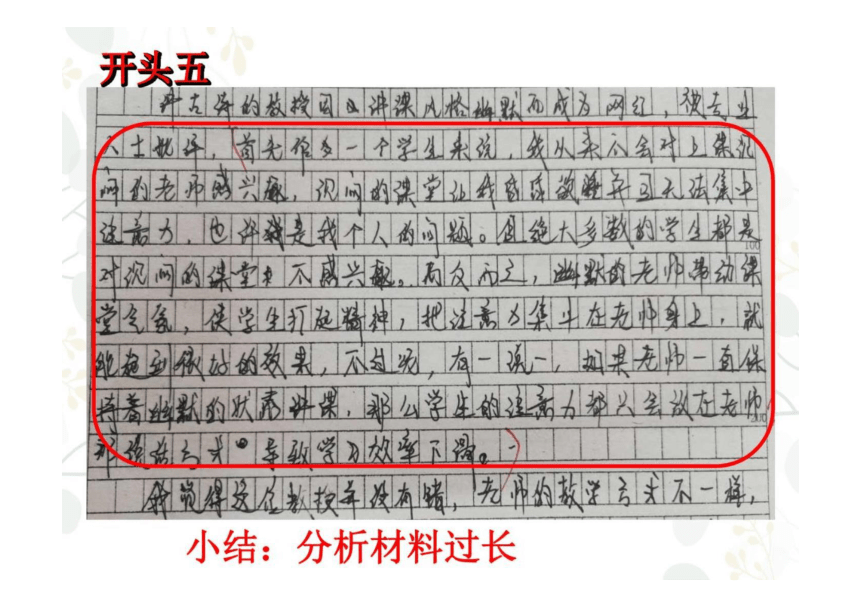 开头五
的教授因为讲课风格幽默而成为网红，被专业
人士批评，首先作为一个学生来说，我从来不会对上课沉
闷的老师感兴趣，沉闷的课堂让我并且无法集中
注意力，也许我是我个人的问题。但绝大多数的学生都是
100
对沉闷的课堂不感兴趣。而反而之，幽默的老师带动课
堂气氛，使学生打起精神，把注意力集中在老师身上，就
能起到很好的效果，不过呢，有一说一，如果老师一直保
持着幽默的状态讲课，那么学生的注意力都只会放在老师
200
那导致学习效率下滑。
我觉得这位教授并没有错，老师的教学方式不一样，
小结：分析材料过长